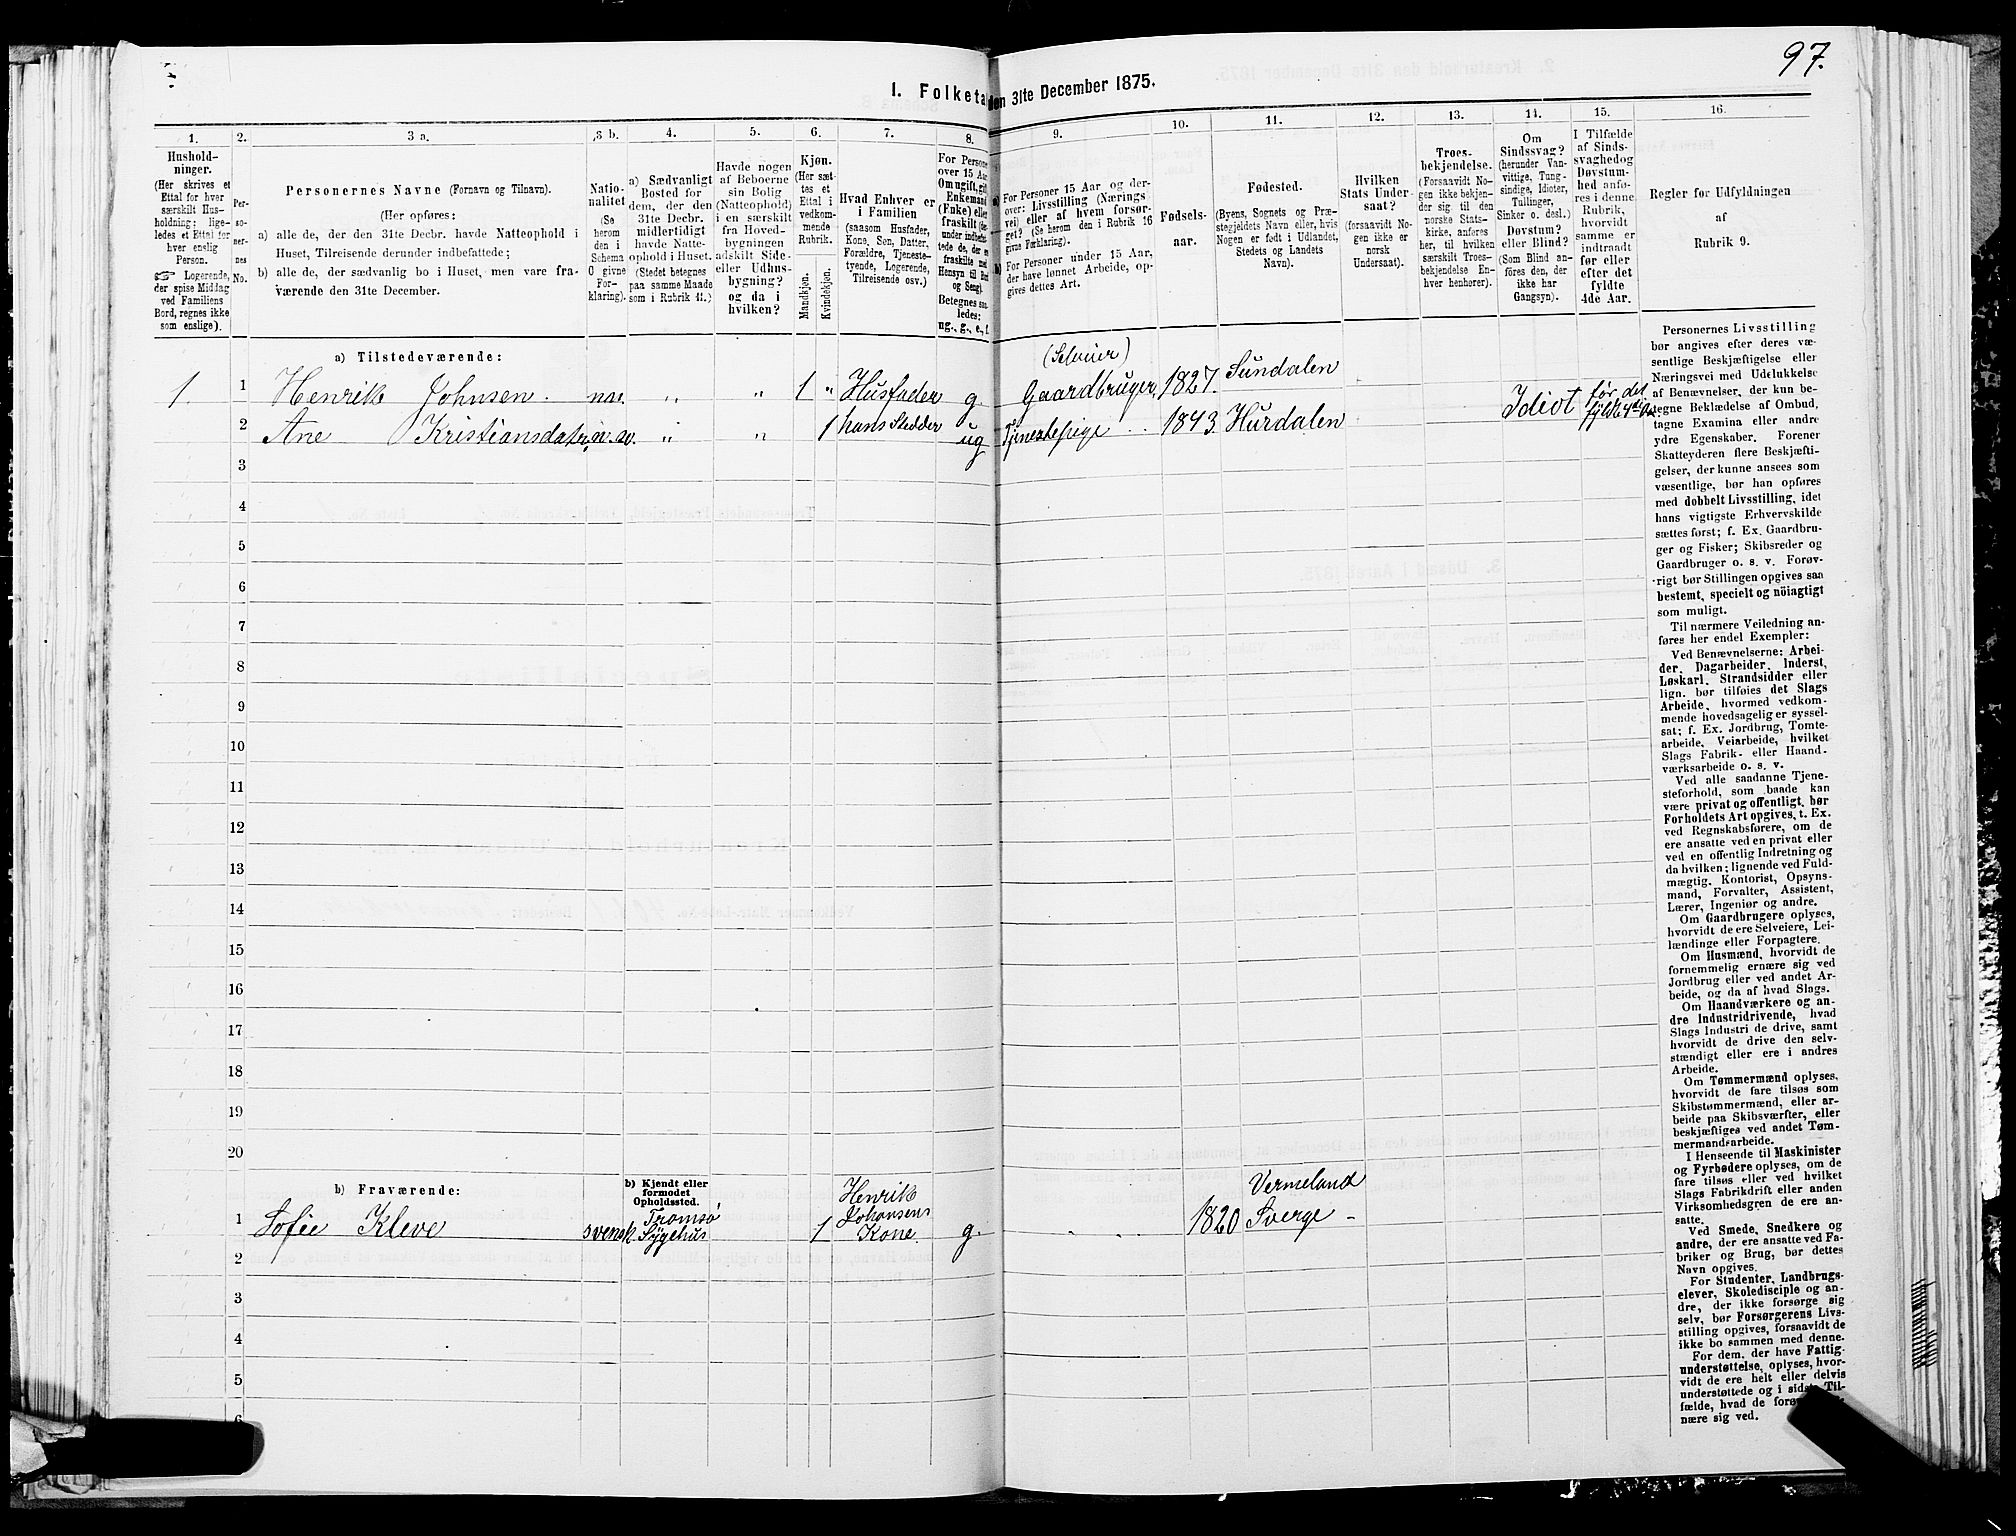 97.
I. Folketa
den 31te December 1875.
1.
Hushold-
ninger.
(Her skrives et
Ettal for hver
særskilt Hus-
holdning; lige-
ledes et Ettal for
hver enslig
Person.
Logerende,
der spise Middag
ved Familiens
Bord, regnes ikke
som enslige).
2.
Per-
so-
ner-
nes
No.
3 a.
Personernes Navne (Fornavn og Tilnavn).
(Her opføres:
a) alle de, der den 31te Decbr. havde Natteophold i
Huset, Tilreisende derunder indbefattede;
b) alle de, der sædvanlig bo i Huset, men vare fra-
værende den 31te December.
3 b.
Natio-
nalitet
(Se
herom
den i
Schema
O givne
For-
klaring).
4.
a) Sædvanligt
Bosted for
dem, der den
31te Decbr.
midlertidigt
havde Natte-
ophold i Huset.
(Stedet betegnes
paa samme Maade
som i Rubrik 11.)
5.
Havde nogen
af Beboerne
sin Bolig
(Natteophold)
i en særskilt
fra Hoved-
bygningen
adskilt Side-
eller Udhus-
bygning?
og da i
hvilken?
6.
Kjøn.
(Her sæt-
tes et
Ettal i
vedkom-
mende
Rubrik.
Mandkjøn.
Kvindekjøn.
7.
Hvad Enhver er
i Familien
(saasom Husfader,
Kone, Søn, Datter,
Forældre, Tjeneste-
tyende, Logerende,
Tilreisende osv.)
8.
For Persone
over 15 Aar
Om ugift, gif
Enkemand
(Enke) eller
fraskilt
Betegnes saa-
ledes:
ug., g., e., f.
9.
a) For Personer 15 Aar og der-
over: Livsstilling (Nærings-
vei) eller af hvem forsør-
get? (Se herom i Rubrik 16
givne Førklaring).
b) For Personer under 15 Aar,
der have lønnet Arbeide, op-
gives dettes Art.
10.
Fødsels-
aar.
11.
Fødested.
(Byens, Sognets og Præ-
stegjeldets Navn eller, hvis
Nogen er født i Udlandet,
Stedets og Landets
Navn).
12.
Hvilken
Stats Under-
saat?
(forsaavidt No-
gen ikke er
norsk
Undersaat).
13.
Troes-
bekjendelse.
(Forsaavidt No-
gen ikke bekjen-
der sig til den
norske Stats-
kirke, anføres
her, til hvilken
særskilt Troes-
bekjendelse En-
hver henhører).
14.
Om
Sindssvag?
(herunder Van-
vittige, Tung-
sindige, Idioter,
Tullinger,
Sinker o. desl.)
Døvstum?
eller Blind?
(Som Blind an-
føres den, der
ikke har
Gangsyn).
15.
I Tilfælde
af Sinds-
svaghed og
Døvstum-
hed anfø-
res i denne
Rubrik,
hvorvidt
samme er
indtraadt
før eller
efter det
fyldte
4de Aar.
16.
Regler før Udfyldningen
af
Rubrik 9.
a) Tilstedeværende:
(Selveier)
1. 1 Henrik Johnsen. nor. " " 1 " Husfader g. Gaardbruger, 1827. Sundalen
2 Ane Kristiansdatter " " 1 ug Tjenestepige 1843. Hurdalen Idiot før det
3
4
5
6
7
8
9
10
11
12
13
14
15
16
17
18
19
20
b) Fraværende:
b) Kjendt eller
formodet
Opholdssted.
1 Sofie Kleve svensk. Tromsø
Sygehus 1 Henrik
Johansens
Kone g. 1820 Vermeland
Sverge -
2
3
4
5
6
Personernes Livsstilling
bør angives efter deres væ-
sentlige Beskjæftigelse eller
Næringsvei med Udelukkelse
af Benævnelser, der kun be-
tegne Beklædelse af Ombud,
tagne Examina eller andre
ydre Egenskaber. Forener
Skatteyderen flere Beskjæfti-
gelser, der kunne ansees som
væsentlige, bør han opføres
med dobbelt Livsstilling, idet
hans vigtigste Erhvervskilde
sættes først; f. Ex. Gaardbru-
ger og Fisker; Skibsreder og
Gaardbruger o. s. v. Forøv-
rigt bør Stillingen opgives saa
bestemt, specielt og nöiagtigt
som muligt.
Til nærmere Veiledning an-
føres her endel Exempler:
Ved Benævnelserne: Arbei-
der, Dagarbeider, Inderst,
Løskarl, Strandsidder eller
lign. bør tilføies det Slags
Arbeide, hvormed vedkom-
mende hovedsagelig er syssel-
sat; f. Ex. Jordbrug, Tomte-
arbeide, Veiarbeide, hvilket
Slags Fabrik- eller Haand-
værksarbeide o. s. v.
Ved alle saadanne Tjene-
steforhold, som baade kan
være privat og offentligt, bør
Forholdets Art opgives, t. Ex.
ved Regnskabsførere, om de
ere ansatte ved en privat eller
ved en offentlig Indretning og
da hvilken; lignende ved Fuld-
mægtig, Kontorist, Opsyns-
mand, Forvalter, Assistent,
Lærer, Ingeniør og andre.
Om Gaardbrugere oplyses,
hvorvidt de ere Selveiere, Lei-
lændinge eller Forpagtere.
Om Husmænd, hvorvidt de
fornemmelig ernære sig ved
Jordbrug eller ved andet Ar-
beide, og da af hvad Slags.
Om Haandværkere og an-
dre Industridrivende, hvad
Slags Industri de drive, samt
hvorvidt de drive den selv-
stændigt eller ere i andres
Arbeide.
Om Tømmermænd oplyses,
hvorvidt de fare tilsøs som
Skibstømmermænd, eller ar-
beide paa Skibsværfter, eller
beskjæftiges ved andet Tøm-
mermandsarbeide.
I Henseende til Maskinister
og Fyrbødere oplyses, om de
fare tilsøs eller ved hvilket
Slags Fabrikdrift eller anden
Virksomhedsgren de ere an-
satte.
Ved Smede, Snedkere og
andre, der ere ansatte ved Fa-
briker og Brug, bør dettes
Navn opgives.
For Studenter, Landbrugs-
elever, Skoledisciple og an-
dre, der ikke forsørge sig
selv, bør Forsørgerens Livs-
stilling opgives, forsaavidt de
ikke bo sammen med denne.
For dem, der have Fattig-
understøttelse, oplyses, hvor-
vidt de ere helt eller delvis
understøttede og i sidste Til-
fælde, hvad de
nære sig ved.